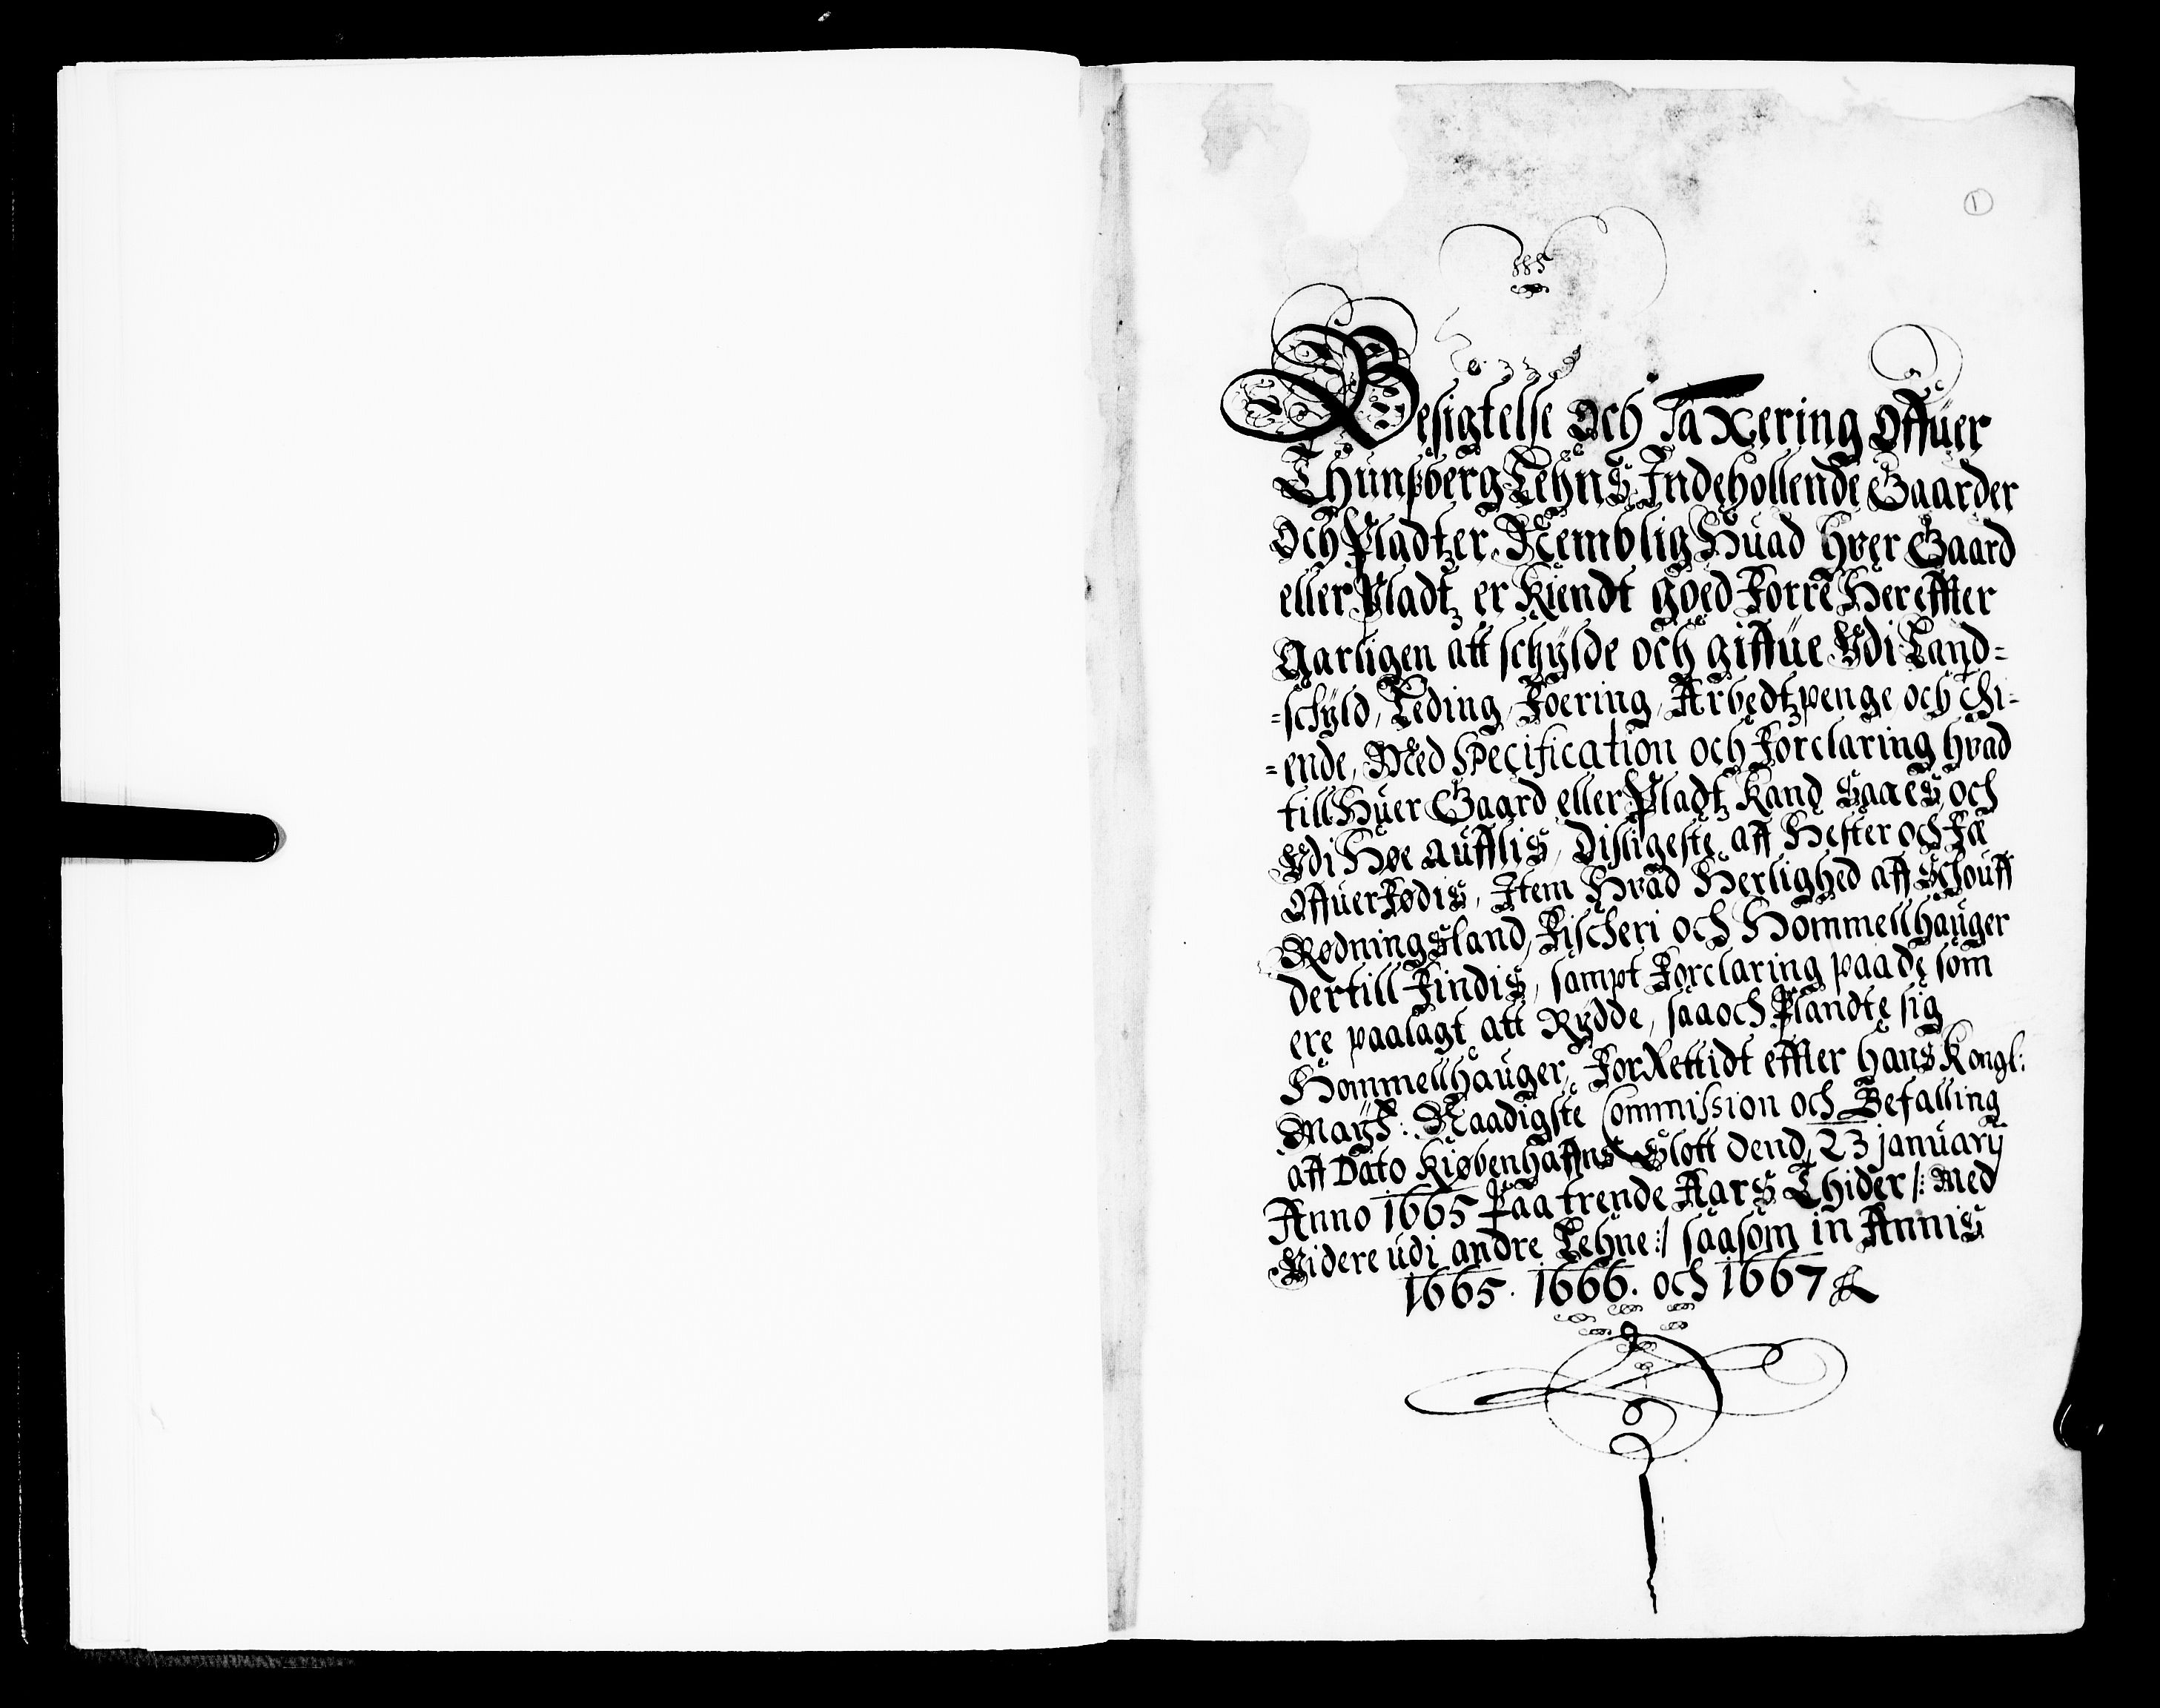 1
Besigtelse Och Taxering Offuer
Thunßberg Lehns Indehollende Gaarder
Och Pladtzer, Nemblig Huad hver Gaard
eller Pladtz er Kiendt goed Forre Hereffter
Aarligen att schylde och giffue Udi Land=
=schyld, Leding, Foering, Arbedtzpenge, och thi=
=ende, Med Specification och Forclaring hvad
till Huer Gaard eller Pladtz kand Saaes, och
Udi Høe aufflis, Disligeste aff Hester och Fæ
Offuerfødis, Item Hvad Herlighed aff Schouff
Rødningsland, Fischeri och Hommellhauger
dertill Findis, sampt Forclaring paa de som
ere paalagt att Rydde, saa och Plandte sig
Hommellhauger, ForRettidt effter hans Kongl:
Mayts: Naadigste Commission och Befalling
aff Dato Kiøbenhaffns Slott dend 23 january
Anno 1665 Paa trende Aars Thider /: Med
Videre udi andre Lehne :/ saasom in Annis
1665. 1666. och 1667